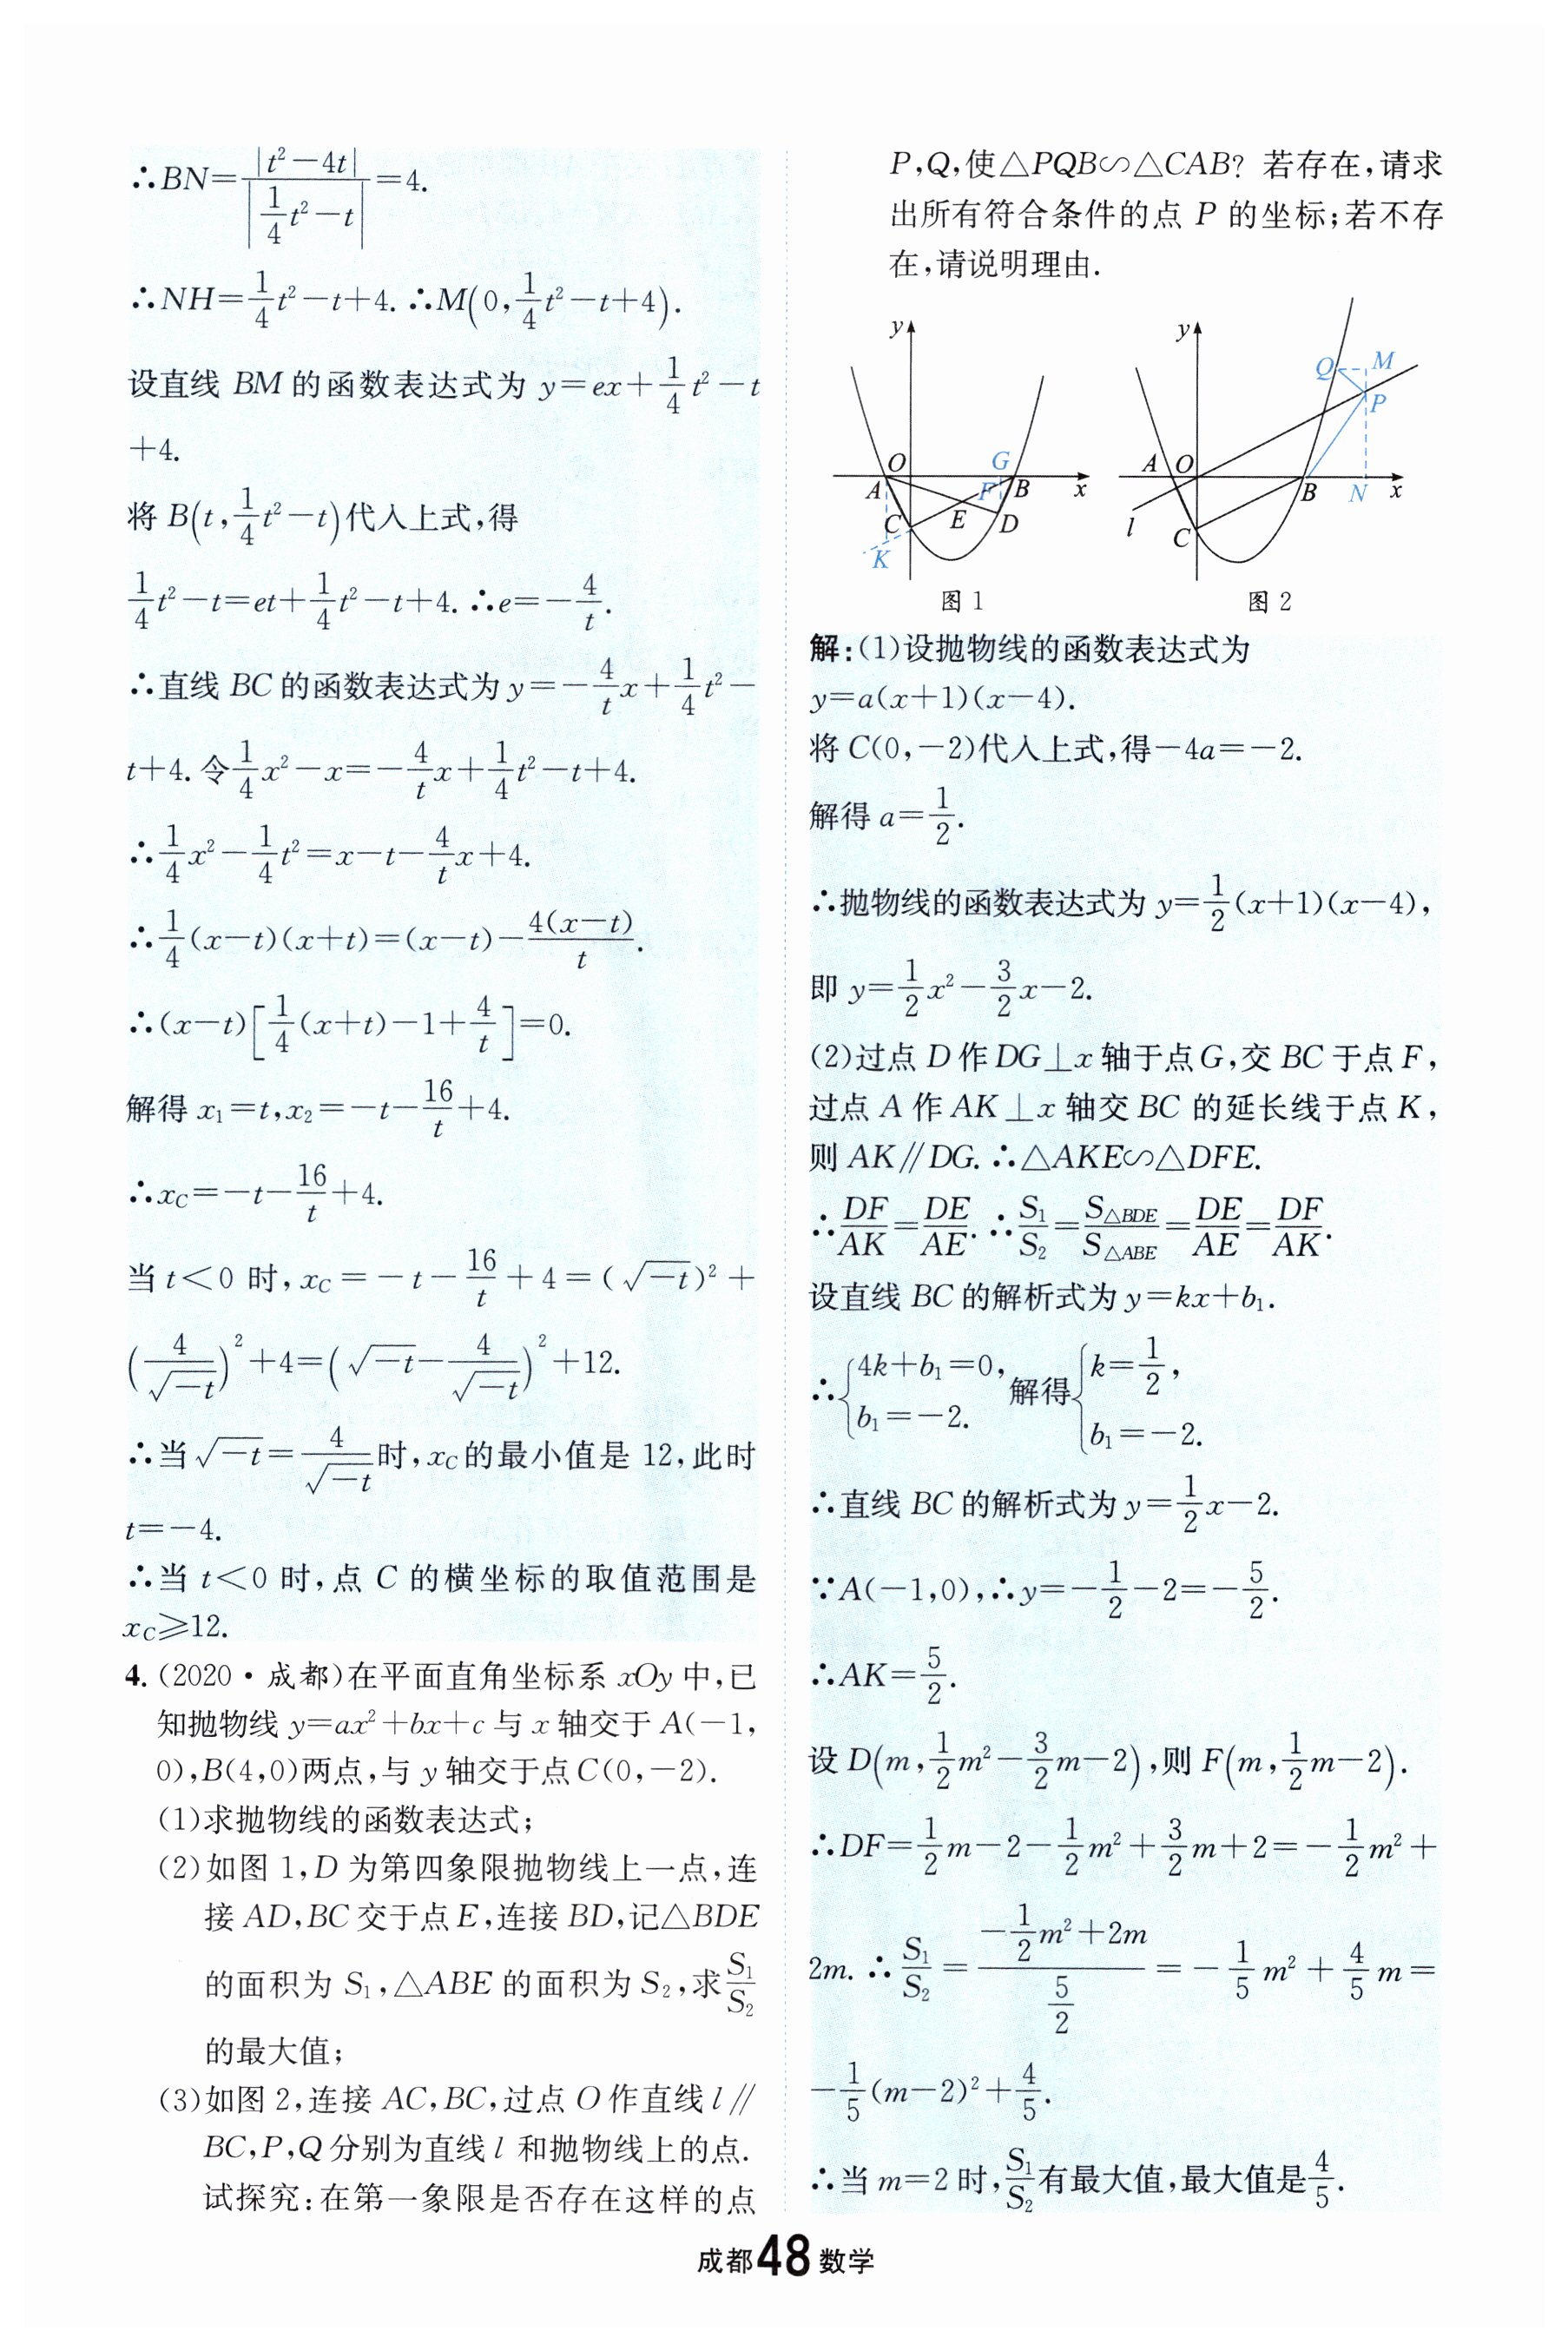 ∴BN=|t²-4t|/|1/4t²-t|=4.
∴NH=1/4t²-t+4. ∴M(0,1/4t²-t+4).
设直线 BM 的函数表达式为 y=ex+1/4t²-t
+4.
将 B(t,1/4t²-t)代入上式,得
1/4t²-t=et+1/4t²-t+4. ∴e=-4/t.
∴直线 BC 的函数表达式为 y=-4/tx+1/4t²-
t+4. 令1/4x²-x=-4/tx+1/4t²-t+4.
∴1/4x²-1/4t²=x-t-4/tx+4.
∴1/4(x-t)(x+t)=(x-t)-4(x-t)/t.
∴(x-t)[1/4(x+t)-1+4/t]=0.
解得 x₁=t,x₂=-t-16/t+4.
∴x_C=-t-16/t+4.
当 t<0 时,x_C=-t-16/t+4=(√-t)²+
(4/√-t)²+4=(√-t-4/√-t)²+12.
∴当√-t=4/√-t时,x_C的最小值是 12,此时
t=-4.
∴当 t<0 时,点 C 的横坐标的取值范围是
x_C⩾12.
4. (2020·成都)在平面直角坐标系 xOy 中,已
知抛物线 y=ax²+bx+c 与 x 轴交于 A(-1,
0),B(4,0)两点,与 y 轴交于点 C(0,-2).
(1)求抛物线的函数表达式;
(2)如图 1,D 为第四象限抛物线上一点,连
接 AD,BC 交于点 E,连接 BD,记△BDE
的面积为 S₁,△ABE 的面积为 S₂,求S₁/S₂
的最大值;
(3)如图 2,连接 AC,BC,过点 O 作直线 l∥
BC,P,Q 分别为直线 l 和抛物线上的点.
试探究:在第一象限是否存在这样的点
P,Q,使△PQB∽△CAB? 若存在,请求
出所有符合条件的点 P 的坐标;若不存
在,请说明理由.
y
O
G
A
F
B
x
C
E
D
K
图 1
y
Q
M
P
A
O
B
N
x
l
C
图 2
解:(1)设抛物线的函数表达式为
y=a(x+1)(x-4).
将 C(0,-2)代入上式,得-4a=-2.
解得 a=1/2.
∴抛物线的函数表达式为 y=1/2(x+1)(x-4),
即 y=1/2x²-3/2x-2.
(2)过点 D 作 DG⊥x 轴于点 G,交 BC 于点 F,
过点 A 作 AK⊥x 轴交 BC 的延长线于点 K,
则 AK∥DG. ∴△AKE∽△DFE.
∴DF/AK=DE/AE. ∴S₁/S₂=S△BDE/S△ABE=DE/AE=DF/AK.
设直线 BC 的解析式为 y=kx+b₁.
∴{4k+b₁=0, b₁=-2. 解得{k=1/2, b₁=-2.
∴直线 BC 的解析式为 y=1/2x-2.
∵A(-1,0),∴y=-1/2-2=-5/2.
∴AK=5/2.
设 D(m,1/2m²-3/2m-2),则 F(m,1/2m-2).
∴DF=1/2m-2-1/2m²+3/2m+2=-1/2m²+
2m. ∴S₁/S₂=(-1/2m²+2m)/(5/2)=-1/5m²+4/5m=
-1/5(m-2)²+4/5.
∴当 m=2 时,S₁/S₂有最大值,最大值是4/5.
成都48数学